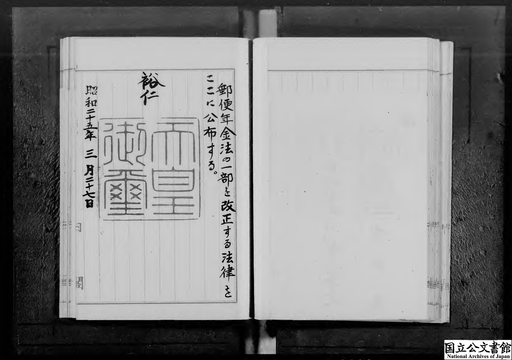 郵便年金法の一部を改正する法律を
ここに公布する。
裕仁
天皇
御璽
昭和二十五年 三月二十七日
国立公文書館
National Archives of Japan